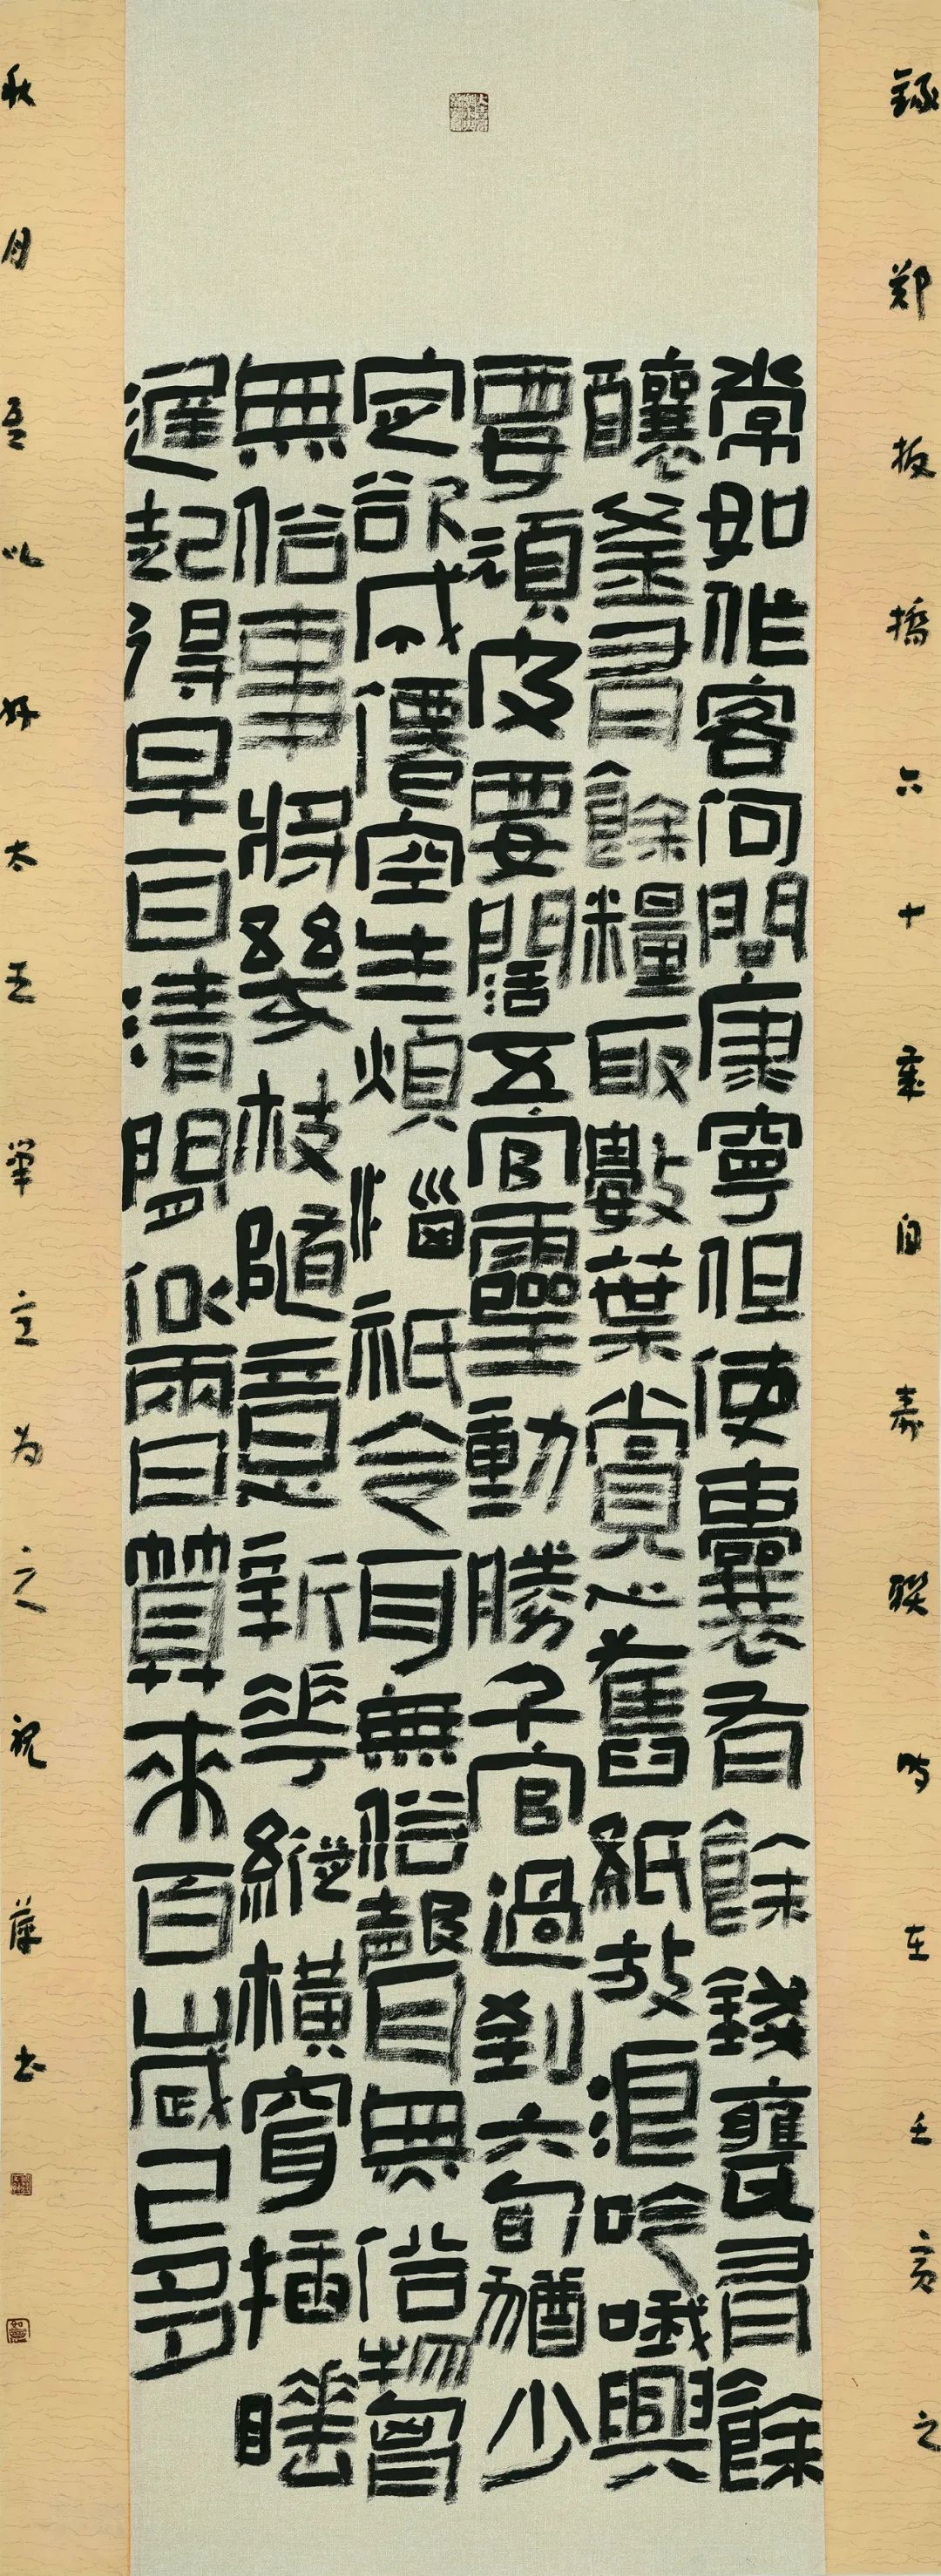 錄鄭板橋六十歲自壽聯時在壬寅之
常如作客何問康寧但使囊有餘錢甕有餘
釀釜有餘糧取數葉賞心舊紙放浪吟哦興
要頑皮要闊五官靈動勝千官過到六旬猶少
定欲成僊空生煩惱祇令耳無俗聲目無俗物胷
無俗事將幾枝隨意新華縱橫穿插睡
遲起得早一日清閒似兩日算來百歲已多
秋月吾以好太王筆意为之祝葆书